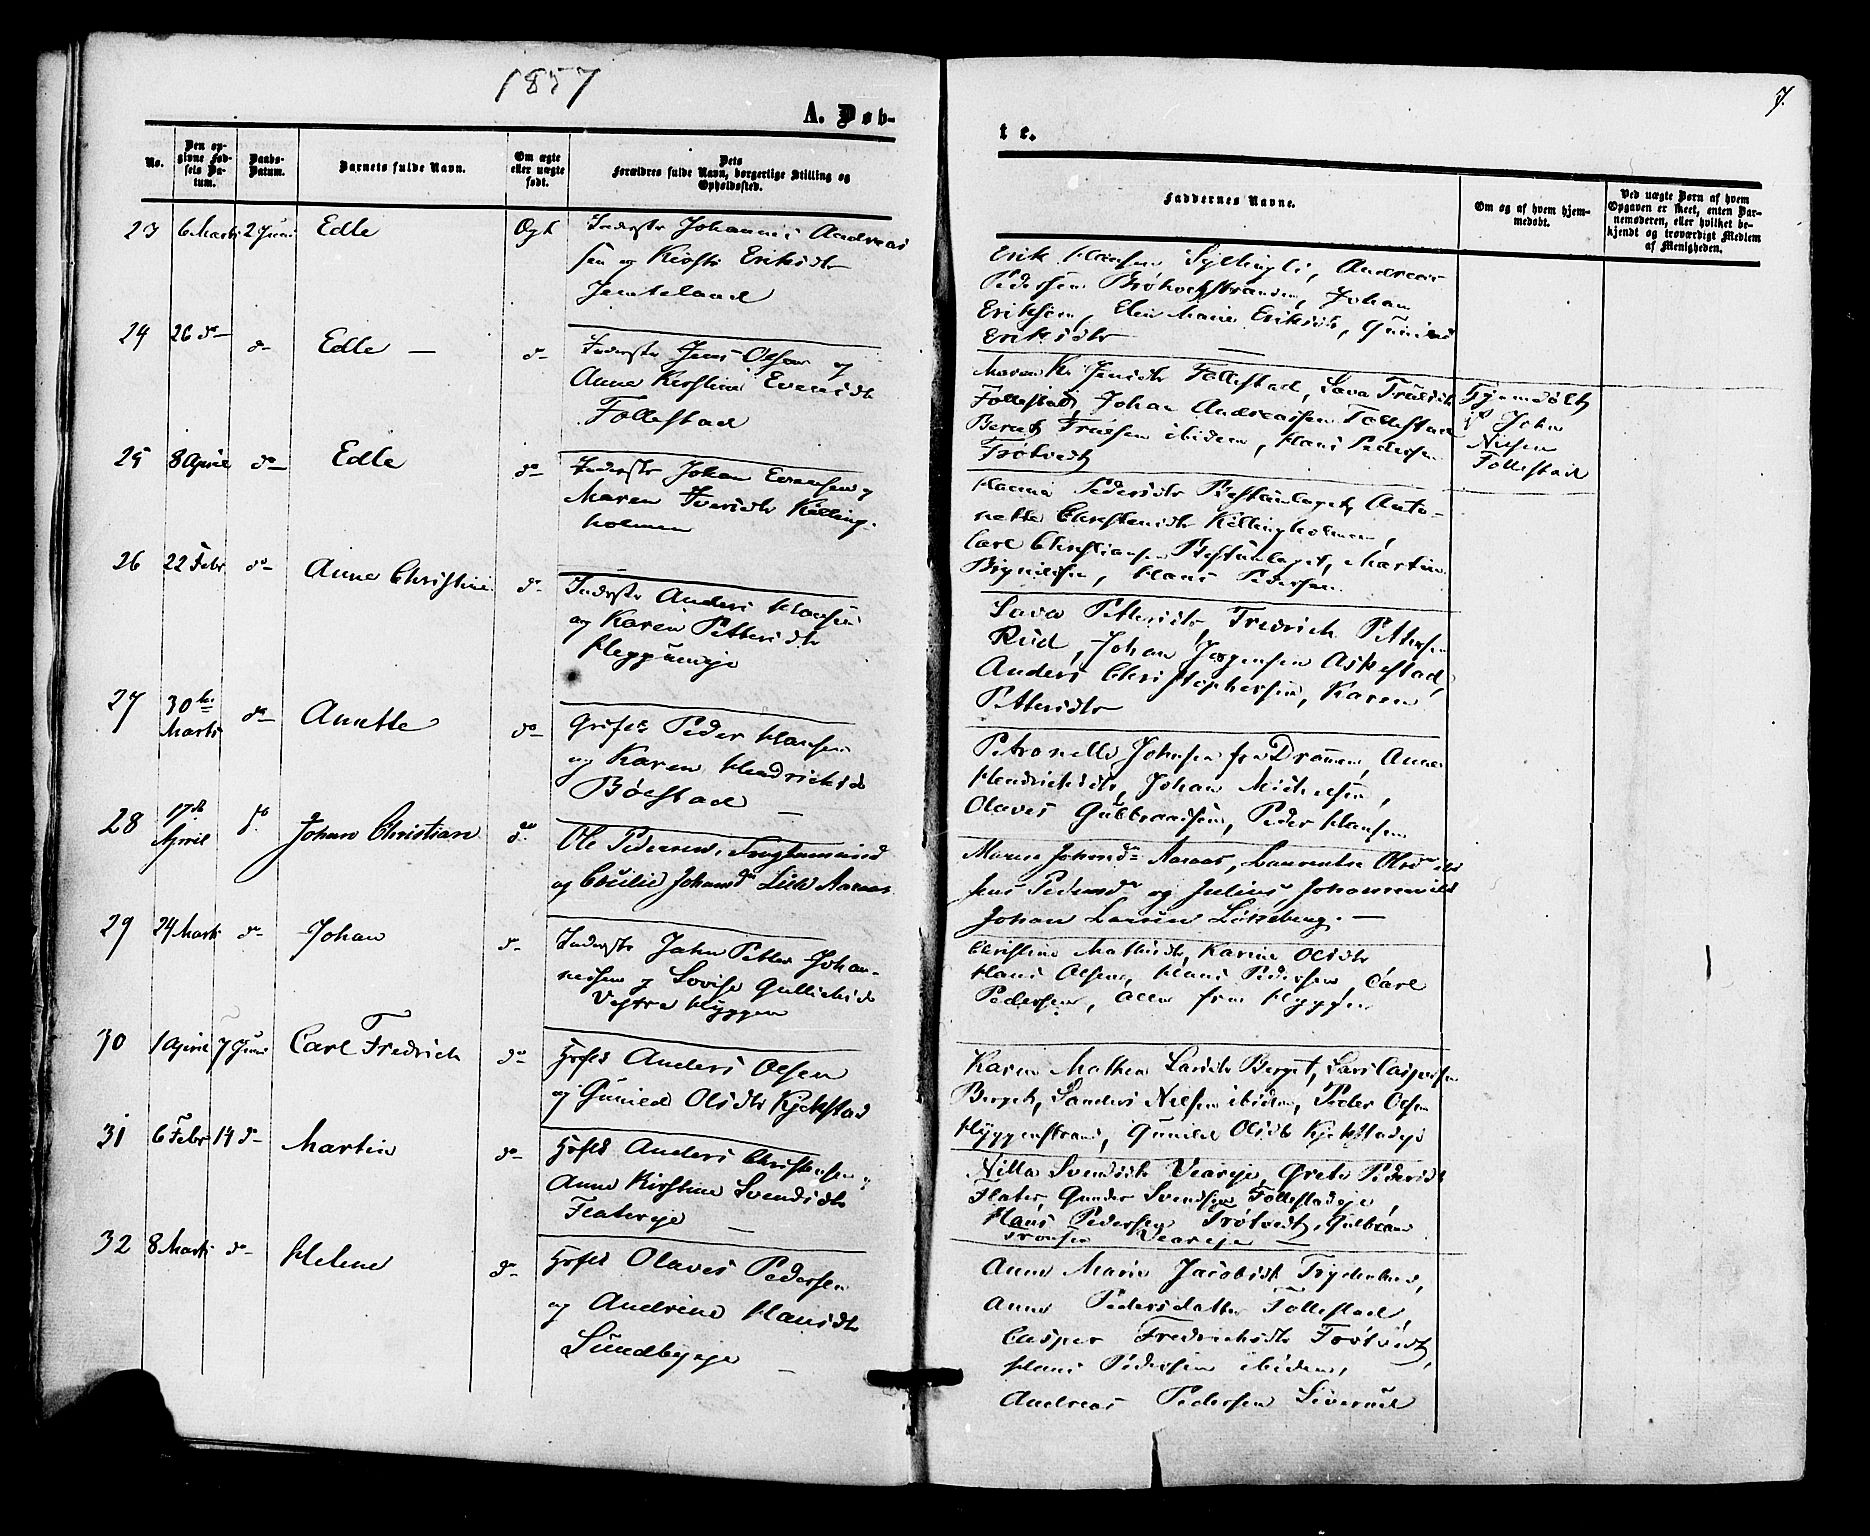 1857
7.
A. Døb-
te.
No.
Den op-
givne Fød-
sels Da-
tum.
Daabs-
Datum.
Barnets fulde Navn.
Om ægte
eller uægte
født.
Dets
Forældres fulde Navn, borgerlige Stilling og
Opholdssted.
Faddernes Navne.
Om og af hvem hjem-
medøbt.
Ved uægte Børn af hvem
Opgaven er skeet, enten Bar-
nemoderen, eller hvilket be-
kjendt og troværdigt Medlem
af Menigheden.
23 6 Marts 2 Juni Edle Ægt Inderste Johannes Andreas
sen og Kirsti Eriksdtr
Jemteland
Erik Hansen Syltingli, Andreas
Pedersen Johan
Eriksen, Elen Marie Eriksdtr, Gunild
Eriksdtr
24 26 do do Edle do Inderste Jens Olsen og
Anne Kirstine Evensdtr
Follestad
Maren Jensdtr Follestad, Lava Trulsdtr
Follestad, Johan Andreassen Follestad
Bernt Trulsen ibidem, Hans Pedersen
Trøtvedt
Hjemdøbt
af John
Nilsen
Follestad
25 8 April do Edle do Inderste Johan Evensen og
Maren Iversdtr Kølling-
holmen
Hanna Pedersdtr Præstenlaget, Anto-
nette Christensdtr Køllingholmen,
Carl Christiansen Præstenlaget, Martin
Hans Pedersen
26 22 Febr do Anne Christine do Inderste Anders Hansen
og Karen Pettersdtr
Heggumeje
Lava Pettersdtr, Fredrich Pettersen
Rud, Johan Jørgensen Askestad,
Anders Christophersen, Karen
Pettersdtr
27 30te
Marts do Anette do Peder Hansen
og Karen Hendrichsd
Bølstad
Petronelle Johnsen fra Drammen, Anne
Hendrichsdtr, Johan Michelsen,
Olaves Gulbrandsen, Peder Hansen
28 17de
April do Johan Christian do Ole Pedersen,
og Cecilie Johansdr Aaraas
Maren Johansdr Aaraas, Laurentse Olsdr
Jens Pedersen og Julius
Johan Larsen
29 24 Marts do Johan do Inderste John Petter Johan-
nessen og Lovise Gullichsd
Vestre Hyggen
Christine Mathisdtr, Karine Olsdtr
Hans Olsen, Hans Pedersen, Carl
Pedersen, alle fra Hyggen
30 1 April 7 Juni Carl Fredrich do Husfd Anders Olsen
og Gunild Olsdtr Kjekstad
Karen Mathea Larsdtr Berget, Lars Caspersen
Berget, Sanders Nilsen ibidem, Peder Olsen
Hyggenstrand, Gunild Olsdtr Kjekstadeje
31 6 Febr 14 do Martin do Husfd Anders Christensen og
Anne Kirstine Svendsdtr
Flatereje
Nilla Svendsdtr Veareje, Grete Pedersdt
Flater, Gunder Svendsen Follestadeje,
Hans Pedersen Trøtvedt, Gulbran
Tronsen Veareje
32 8 Marts do Helene do Husfd Olaves Pedersen
og Andrine Hansdtr
Sundbyeje
Anne Marie Jacobsdt
Anne Pedersdatter Follestad,
Casper Fredrichsdtr Trøtvedt,
Hans Pedersen ibidem,
Andreas Pedersen Liverud